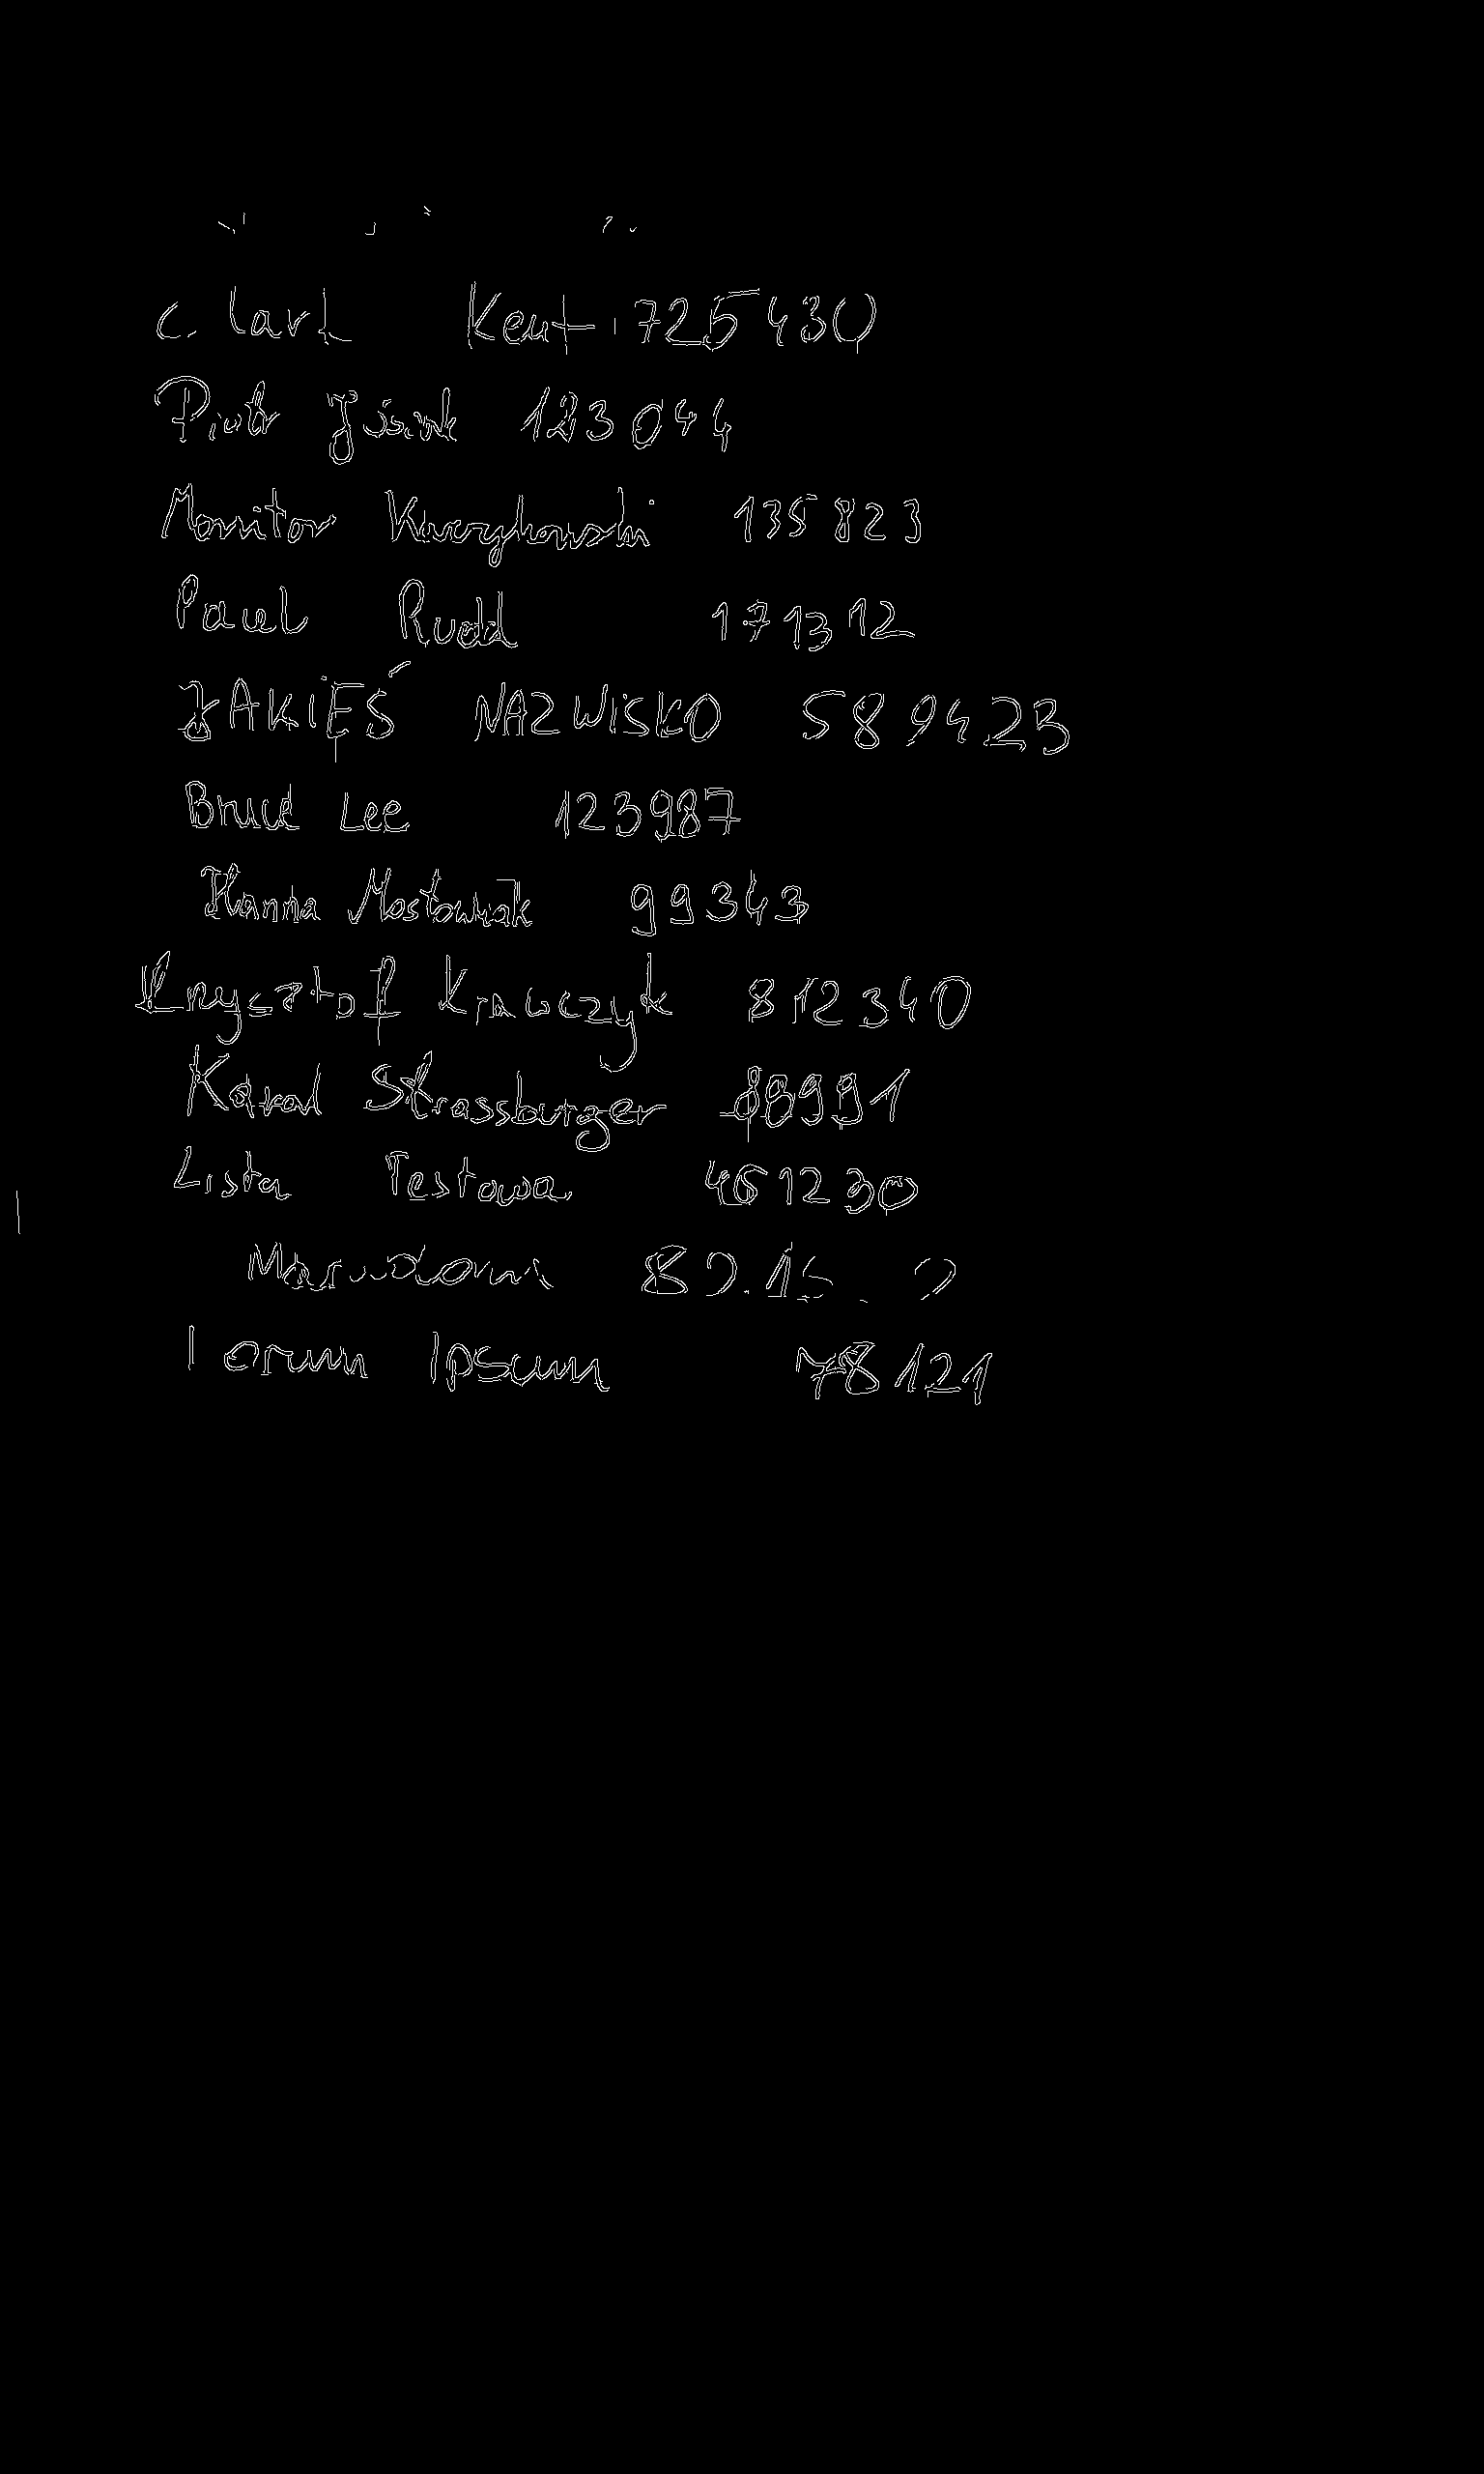 c. lark Kent 725430
Piotr 123044
Monitor 135823
Paul Rudd 171312
JAKIEŚ NAZWISKO 589423
Bruce Lee 123987
Hanna Mostowiak 99343
Krzysztof Krawczyk 812340
Karol Strassburger 08991
Lista Testowa 461230
Lorum Ipsum 78121